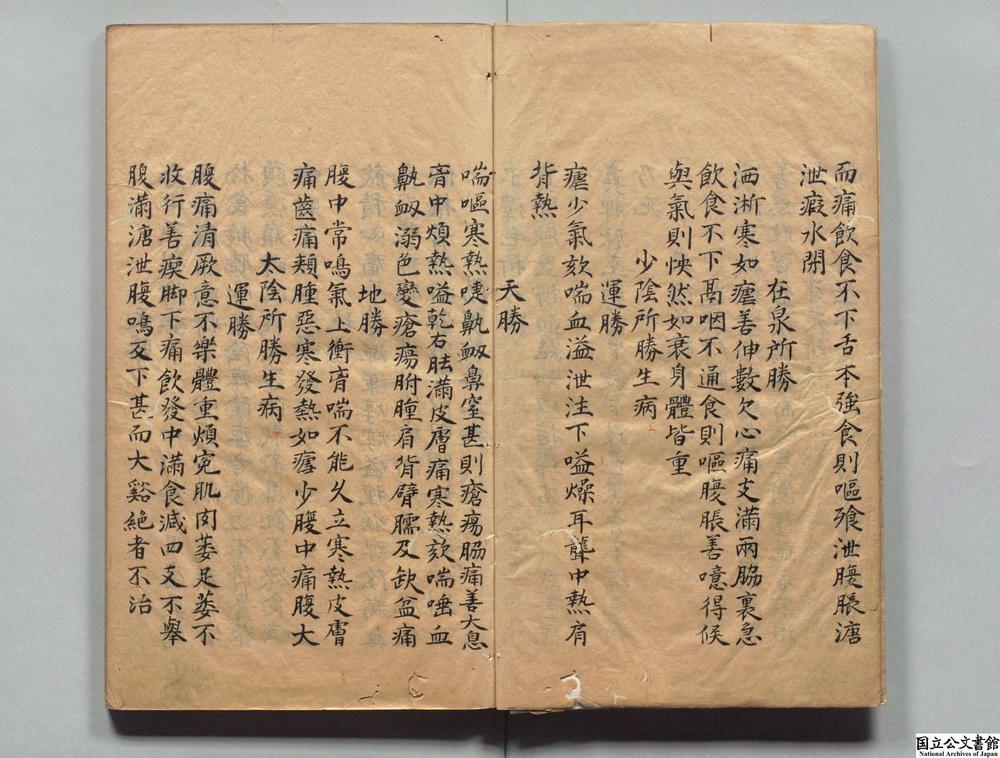 而痛飲食不下舌本強食則嘔飱泄腹脹溏
泄瘕水閉
在泉所勝
洒淅寒如瘧善伸數欠心痛支滿兩脇裏急
飲食不下鬲咽不通食則嘔腹脹善噫得候
與氣則怏然如衰身體皆重
少陰所勝生病
運勝
瘧少氣欬喘血溢泄注下嗌燥耳聾中熱肩
背熱
天勝
喘嘔寒熱嚏鼽衂鼻窒甚則瘡瘍脇痛善大息
胷中煩熱嗌乾右胠滿皮膚痛寒熱欬喘唾血
鼽衂溺色變瘡瘍胕腫肩背臂臑及缺盆痛
地勝
腹中常鳴氣上衝胷喘不能久立寒熱皮膚
痛齒痛䪼腫惡寒發熱如瘧少腹中痛腹大
太陰所勝生病
運勝
腹痛清厥意不樂體重煩寃肌肉萎足萎不
收行善瘈脚下痛飲發中滿食減四支不舉
腹滿溏泄腹鳴反下甚而大谿絕者不治
国立公文書館
National Archives of Japan